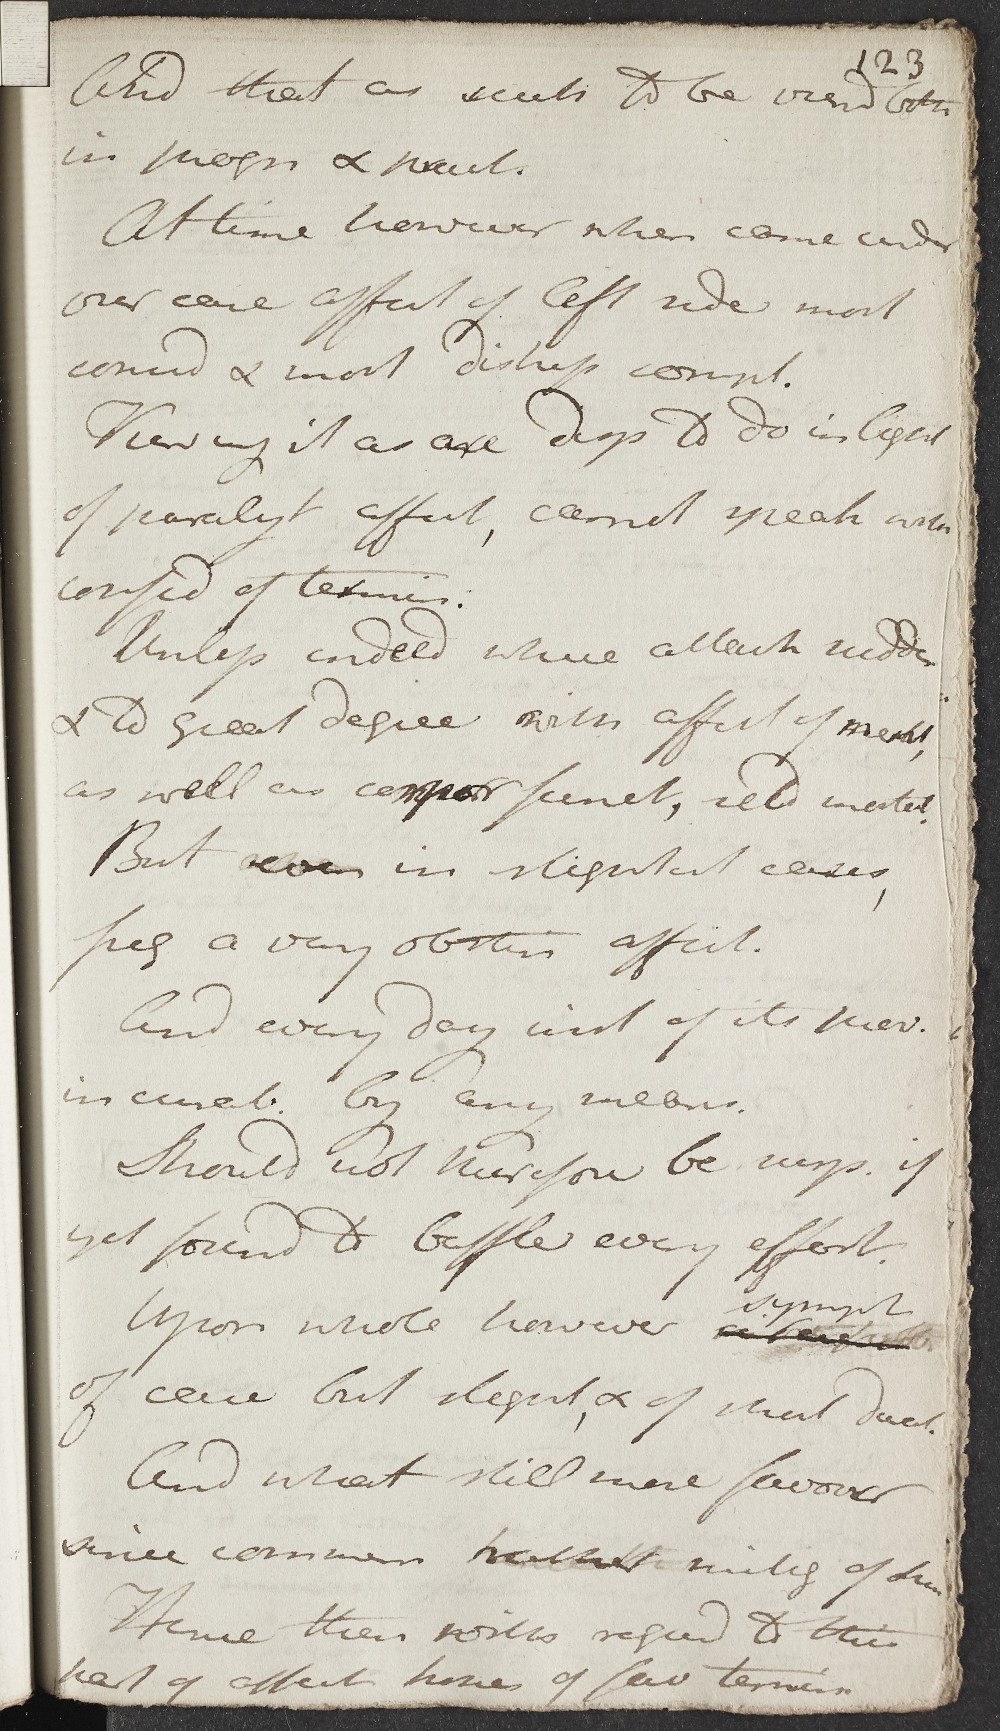 123
And that as such to be view'd both
in progn & pract.
At time however when came under
our care affect of left side most
consid & most distress compl.
Viewing it as are disp to do in light
of paralyt affect, cannot speak with
confid of termin.
Unless indeed where attack sudden
& to great degree with affect of ment,
as well as corpor funct, seld mortal.
But even in slightest cases,
freq a very obstin affect.
And every day inst of its prov.
incurab. by any means.
Should not therefore be surps. if
yet found to baffle every effort.
Upon whole however sympt
of case but slight, & of short durat.
And what still more favour
since commenc mitig of
Hence then with regard to this
part of affect hopes of fav termin